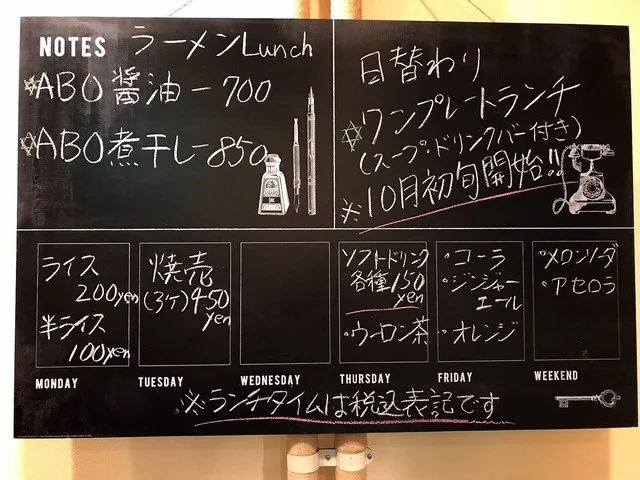 NOTES ラーメンLunch
☆ABO醤油-700
☆ABO煮干し-850
日替わり
☆ワンプレートランチ
(スープ・ドリンクバー付き)
※10月初旬開始!!
ライス
200yen
半ライス
100yen
焼売
(3ケ)450
yen
ソフトドリンク
各種150
yen
・ウーロン茶
・コーラ
・ジンジャー
エール
・オレンジ
・メロンソーダ
・アセロラ
MONDAY
TUESDAY
WEDNESDAY
THURSDAY
FRIDAY
WEEKEND
※ランチタイムは税込表記です